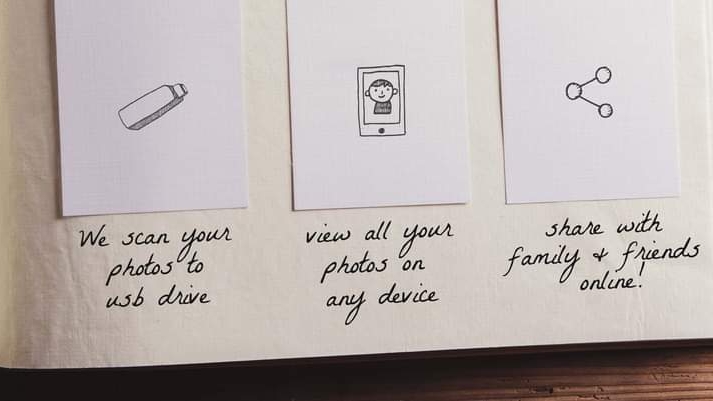 We scan your
photos to
usb drive
view all your
photos on
any device
share with
family & friends
online!